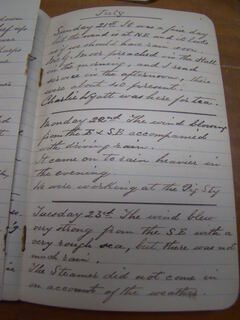 July
Sunday 21st It was a fine day
but the wind is at N.E. and it looks
as if we should have rain soon.
Mr. Never preached in the Hall
in the morning, and I read the
service in the afternoon, there
were about 40 present.
Charlie Lyatt was here for tea.
Monday 22nd The wind blowing
from the E & SE accompanied
with driving rain.
It came on to rain heavier in
the evening.
We were working at the Pig Sty
Tuesday 23rd The wind blew
very strong from the SE with a
very rough sea, but there was not
much rain.
The Steamer did not come in
on account of the weather.